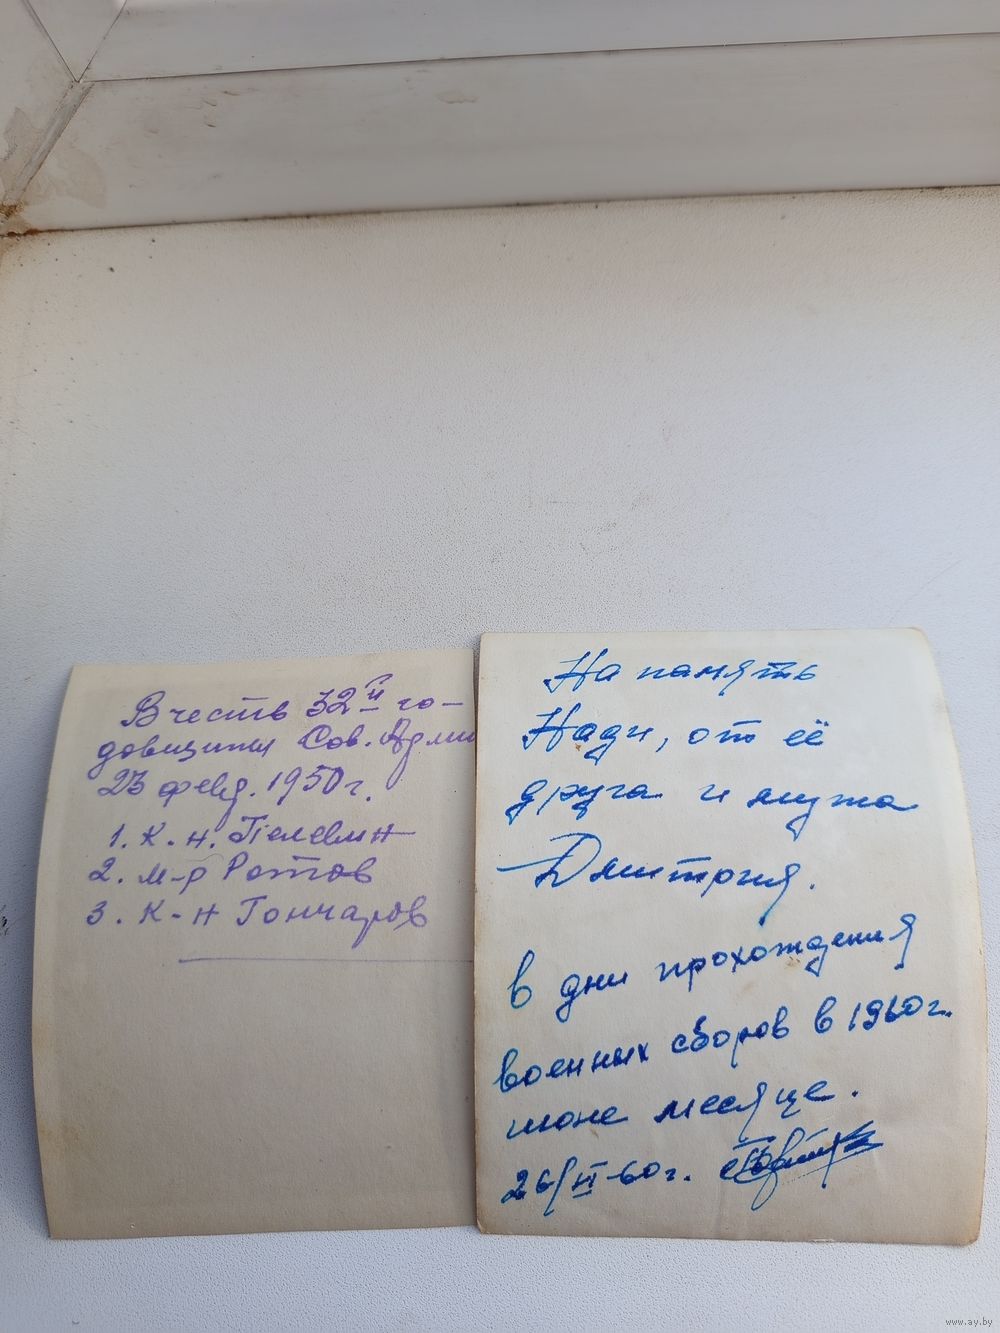 В честь 32й го-
довщины Сов. Арми
23 февр. 1950 г.
1. к-н. Пелевин
2. м-р Ротов
3. к-н Гончаров
На память
Нади, от её
друга и мужа
Дмитрия.
в дни прохождения
военных сборов в 1960 г.
июне месяце.
26/VI-60 г.
www.ay.by